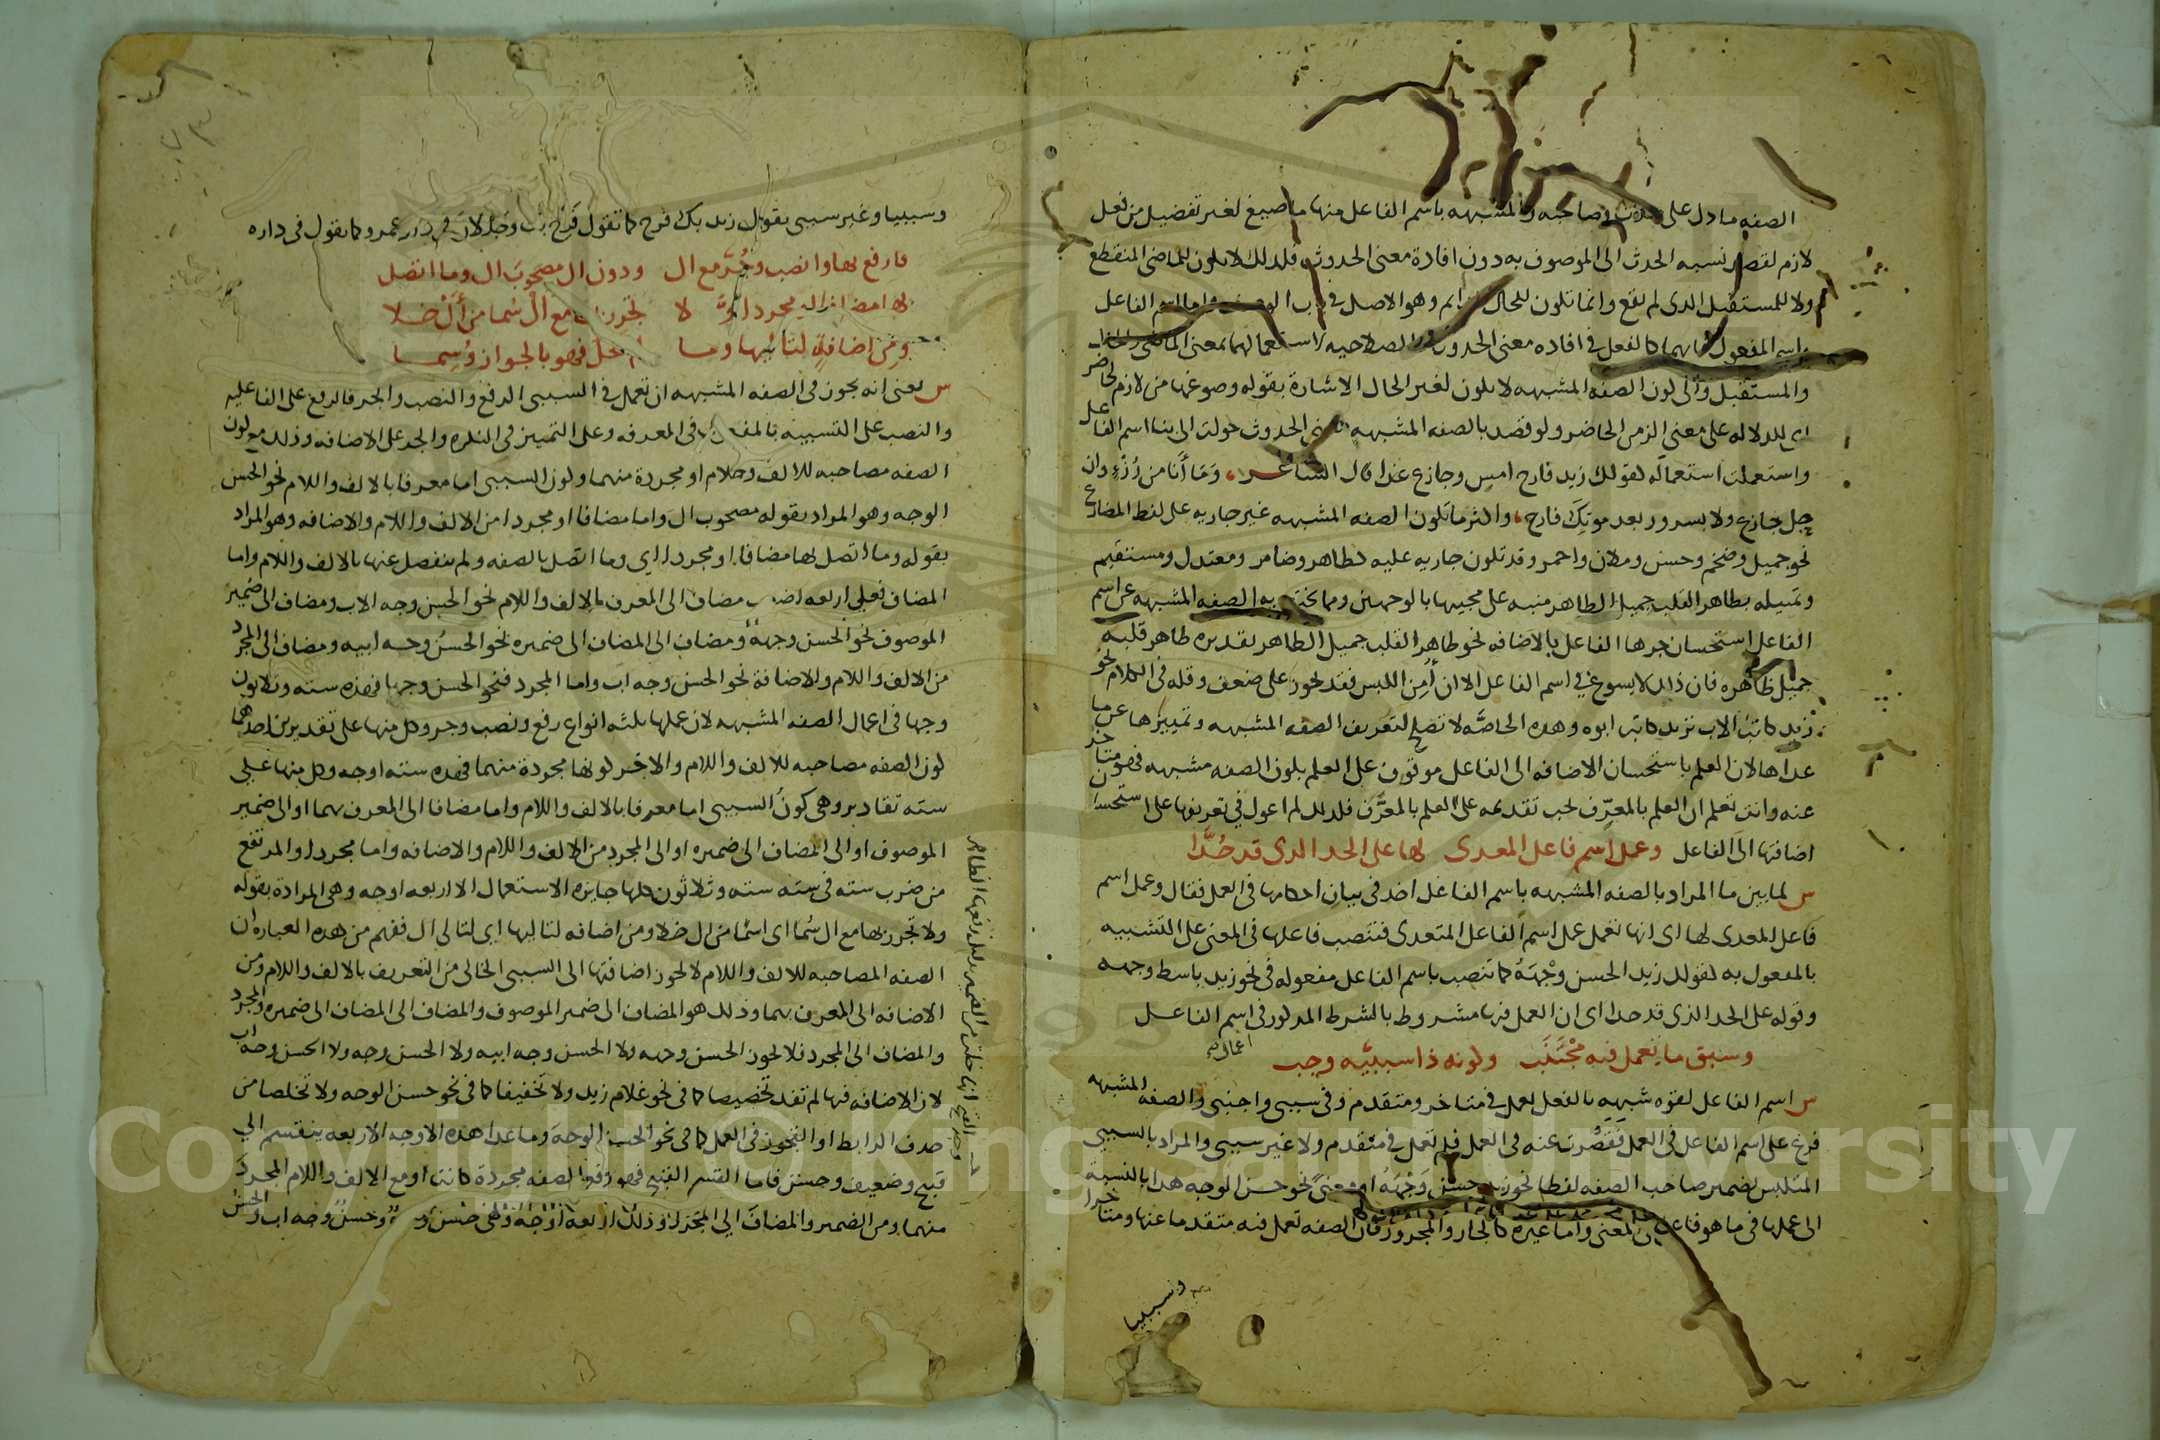 الصفه ما دل على حدث وصاحبه والمشبهه باسم الفاعل منها ما صيغ لغير تفضيل من فعل
لازم لقصد نسبه الحدث الى الموصوف به دون افادة معنى الحدوث فلذلك لا يكون للماضى المنقطع
ولا للمستقبل الذى لم يقع وانما تكون للحال الدايم وهو الاصل فى باب الوصف واما اسم الفاعل
واسم المفعول فانهما كالفعل فى افاده معنى الحدوث والصلاحيه لاستعمالهما بمعنى الماضى والحال
والمستقبل والى كون الصفه المشبهه لا يكون لغير الحال الاشارة بقوله وصوغها من لازم لحاضر
اى للدلاله على معنى الزمن الحاضر ولو قصد بالصفه المشبهه معنى الحدوث حولت الى بنا اسم الفاعل
واستعملت استعماله كقولك زيد فارح امس وجازع غدا قال الشاعر وما أنا من رُزْءٍ وان
جل جازع ولا بسرور بعد موتِكَ فارح والثر ما تكون الصفه المشبهه غير جاريه على لفظ المضارع
نحو جميل وضخم وحسن وملان واحمر وقد تكون جاريه عليه كطاهر وضامر ومعتدل ومستقيم
وتمثيله بطاهر القلب جميل الظاهر منبه على مجيها بالوجهين ومما تختص به الصفه المشبهه عن اسم
الفاعل استحسان جرها الفاعل بالاضافه نحو طاهر القلب جميل الظاهر تقديره طاهر قلبه
جميل ظاهره فان ذلك لا يسوغ فى اسم الفاعل الا ان أُمِن اللبس فقد يجوز على ضعف وقله فى الكلام نحو
زيد كاتب الاب تريد كاتب ابوه وهذه الخاصّه لا تصلح لتعريف الصفه المشبهه وتمييزها عن ما
عداها لان العلم باستحسان الاضافه الى الفاعل موقوف على العلم بكون الصفه مشبهه فهو متاخر
عنه وانت تعلم ان العلم بالمعرِّف يجب تقدمه على العلم بالمعرَّف فلذلك لم اعول فى تعريفها على استحسان
اضافتها الى الفاعل وعمل اسم فاعل المعدى لها على الحد الذى قد حُدَّا
س لما بين ما المراد بالصفه المشبهه باسم الفاعل اخذ فى بيان احكامها فى العمل فقال وعمل اسم
فاعل المعدى لها اى انها تعمل عمل اسم الفاعل المتعدى فتنصب فاعلها فى المعنى على التشبيه
بالمفعول به كقولك زيد الحسن وجْهَهُ كما تنصب باسم الفاعل مفعوله فى نحو زيد باسط وجهه
وقوله على الحد الذى قد حدا اى ان العمل فيها مشروط بالشرط المذكور فى اسم الفاعل
وسبق ما تعمل فيه مجْتَنَب وكونه ذا سببيَّه وجب
س اسم الفاعل لقوه شبهه بالفعل يعمل فى متاخر ومتقدم وفى سببى واجنبى والصفه المشبهه
فرع على اسم الفاعل فى العمل فقَصُرت عنه فى العمل فلم تعمل فى متقدم ولا غير سببى والمراد بالسببى
المتلبس بضمير صاحب الصفه لفظا نحو زيد حسن وَجْهَهُ او معنى نحو حسن الوجه هذا بالنسبة
الى عملها فى ما هو فاعل فى المعنى واما غيره كالجار والمجرور فان الصفه تعمل فيه متقدما عنها ومتاخرا
وسببيا
وسببيا وغير سببى تقول زيد بك فرح كما تقول فرح بك وجذلان فى دار عمرو كما تقول فى داره
فارفع بها وانصب وجُرَّ مع ال ودون ال مصحوبَ ال وما اتصل
بها مضافا او مجردا ولا تجرر بها مع ال سُما من أَلْ خلا
ومن اضافةٍ لتاليها وما لم يخل فهو بالجواز وُسِما
س يعنى انه يجوز فى الصفه المشبهه ان تعمل فى السببى الرفع والنصب والجر فالرفع على الفاعليه
والنصب على التشبيه بالمفعول فى المعرفه وعلى التمييز فى النكره والجر على الاضافه وذلك مع كون
الصفه مصاحبه للالف واللام او مجردة منهما وكون السببى اما معرفا بالالف واللام نحو الحسن
الوجه وهو المراد بقوله مصحوب ال واما مضافا او مجردا من الالف واللام والاضافه وهو المراد
بقوله وما اتصل بها مضافا او مجردا اي وما اتصل بالصفه ولم ينفصل عنها بالالف واللام واما
المضاف فعلى اربعه اضرب مضاف الى المعرف بالالف واللام نحو الحسن وجه الاب ومضاف الى ضمير
الموصوف نحو الحسن وجههُ ومضاف الى المضاف الى ضميره نحو الحسنُ وجه ابيه ومضاف الى المجرد
من الالف واللام والاضافة نحو الحسن وجه اب واما المجرد فنحو الحسن وجها فهذه سته وثلاثون
وجها فى اعمال الصفه المشبهه لان عملها ثلثه انواع رفع ونصب وجر وكل منها على تقديرين احدهما
كون الصفه مصاحبه للالف واللام والاخر كونها مجردة منهما فهذه سته اوجه وكل منها على
سته تقادير وهى كونُ السببى اما معرفا بالالف واللام واما مضافا الى المعرف بهما او الى ضمير
الموصوف او الى المضاف الى ضميره او الى المجرد من الالف واللام والاضافه واما مجردا والمرتفع
من ضرب سته فى سته سته وثلاثون كلها جايزه الاستعمال الا اربعه اوجه وهى المرادة بقوله
ولا تجرر بها مع ال سُما اى اسْما من ال خلا ومن اضافه لتاليها اى لتالى ال ففهم من هذه العباره ان
الصفه المصاحبه للالف واللام لا يجوز اضافتها الى السببى الخالى من التعريف بالالف واللام ومن
الاضافه الى المعرف بهما وذلك هو المضاف الى ضمير الموصوف والمضاف الى المضاف الى ضميره والمجرد
والمضاف الى المجرد فلا يجوز الحسن وجهه ولا الحسن وجه ابيه ولا الحسن وجه ولا الحسن وجه اب
لان الاضافه فيها لم تفد تخصيصا كما فى نحو غلام زيد ولا تخفيفا كما فى نحو حسن الوجه ولا تخلصا من
حذف الرابط او التجوز فى العمل كما فى نحو الحسن الوجه وما عدا هذه الاوجه الاربعه ينقسم الى
قبيح وضعيف وحسن فاما القسم القبيح فهو رفع الصفه مجردة كانت او مع الالف واللام المجرد
منهما ومن الضمير والمضاف الى المجرد وذلك اربعة اوجه وهى حسن وجه وحسن وجه اب والحسن